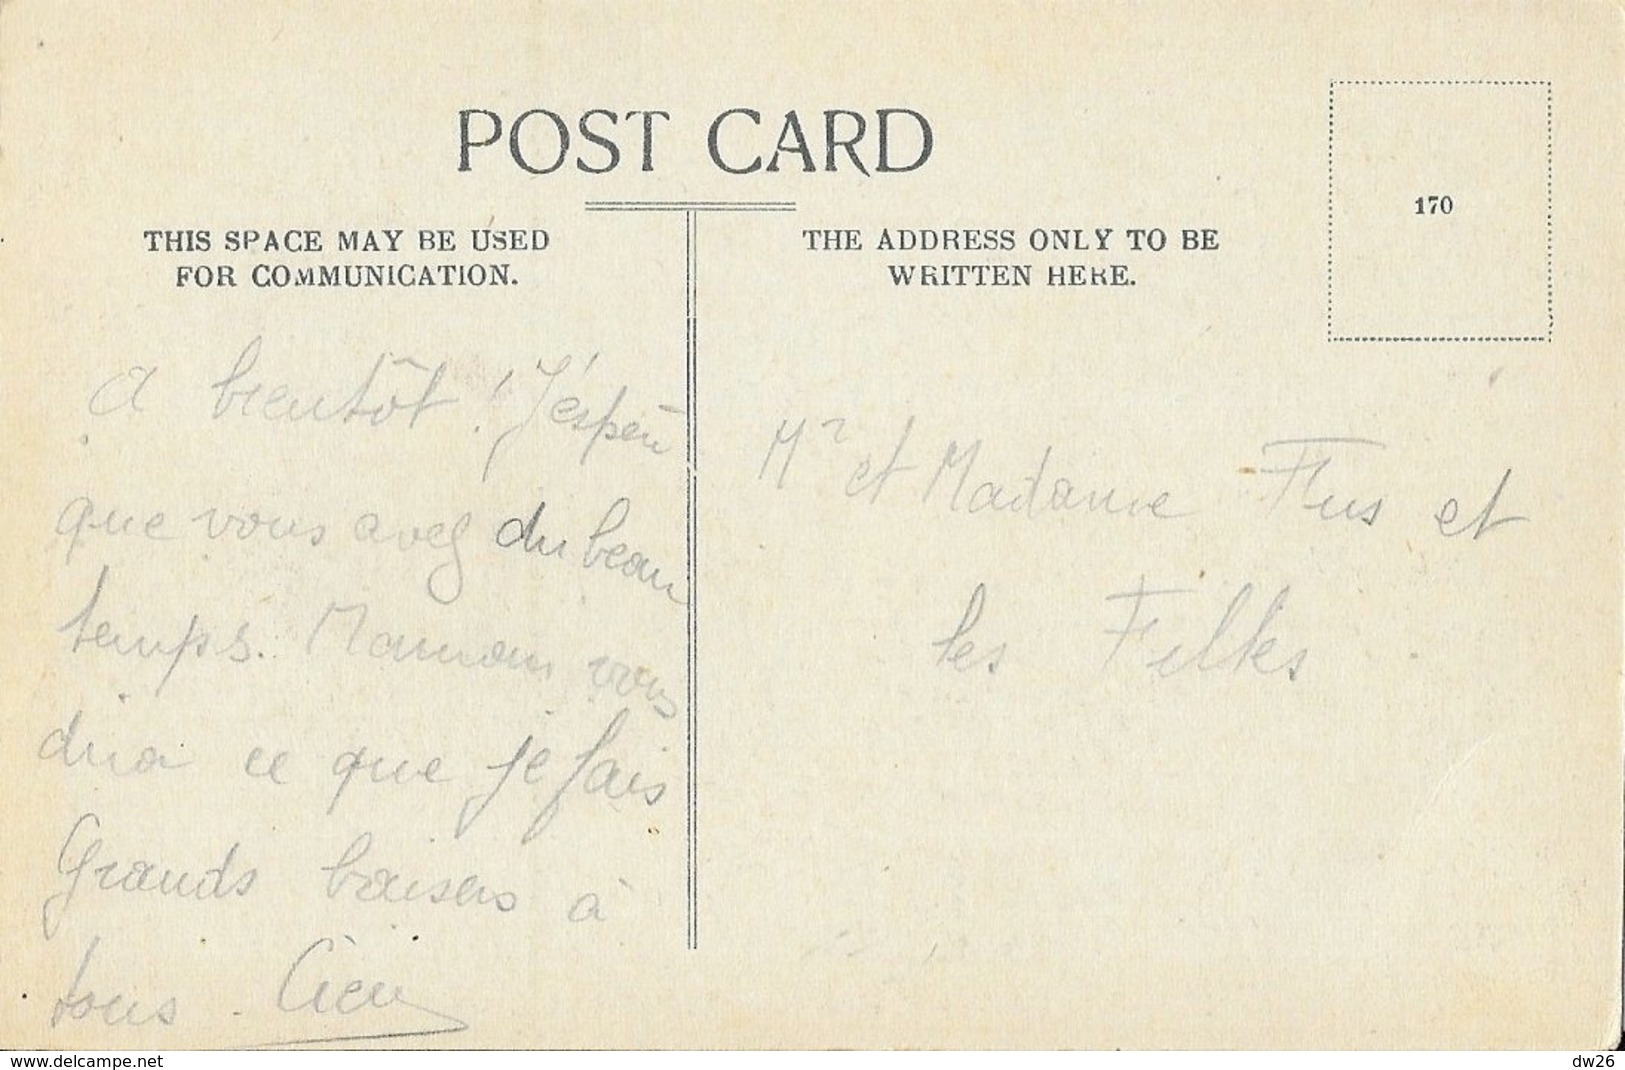 POST CARD
THIS SPACE MAY BE USED
FOR COMMUNICATION.
THE ADDRESS ONLY TO BE
WRITTEN HERE.
170
A bientôt ! J'espère
que vous avez du beau
temps. Maman vous
dira ce que je fais
Grands baisers à
tous.
Mr et Madame Flus et
les
www.delcampe.net
dw26